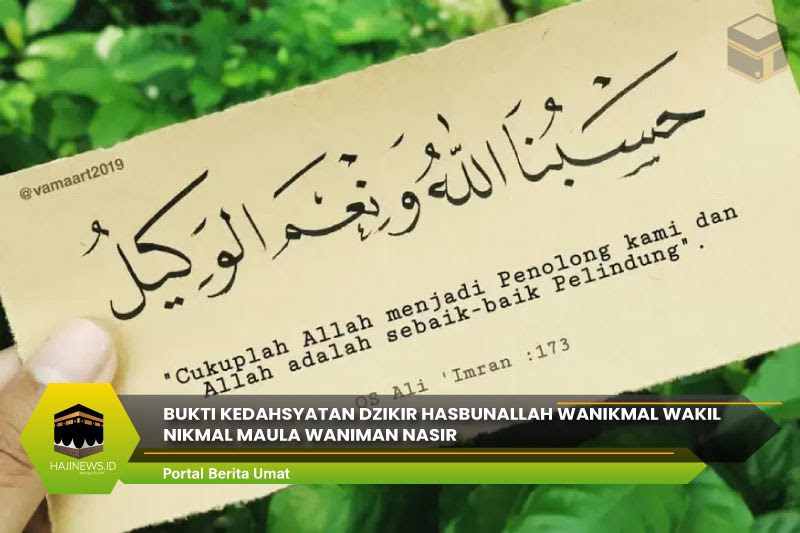 @vamaart2019
حَسْبُنَا اللّٰهُ وَنِعْمَ الْوَكِيْلُ
"Cukuplah Allah menjadi Penolong kami dan
Allah adalah sebaik-baik Pelindung".
QS Ali 'Imran :173
BUKTI KEDAHSYATAN DZIKIR HASBUNALLAH WANIKMAL WAKIL
NIKMAL MAULA WANIMAN NASIR
HAJINEWS.ID
Portal Berita Umat